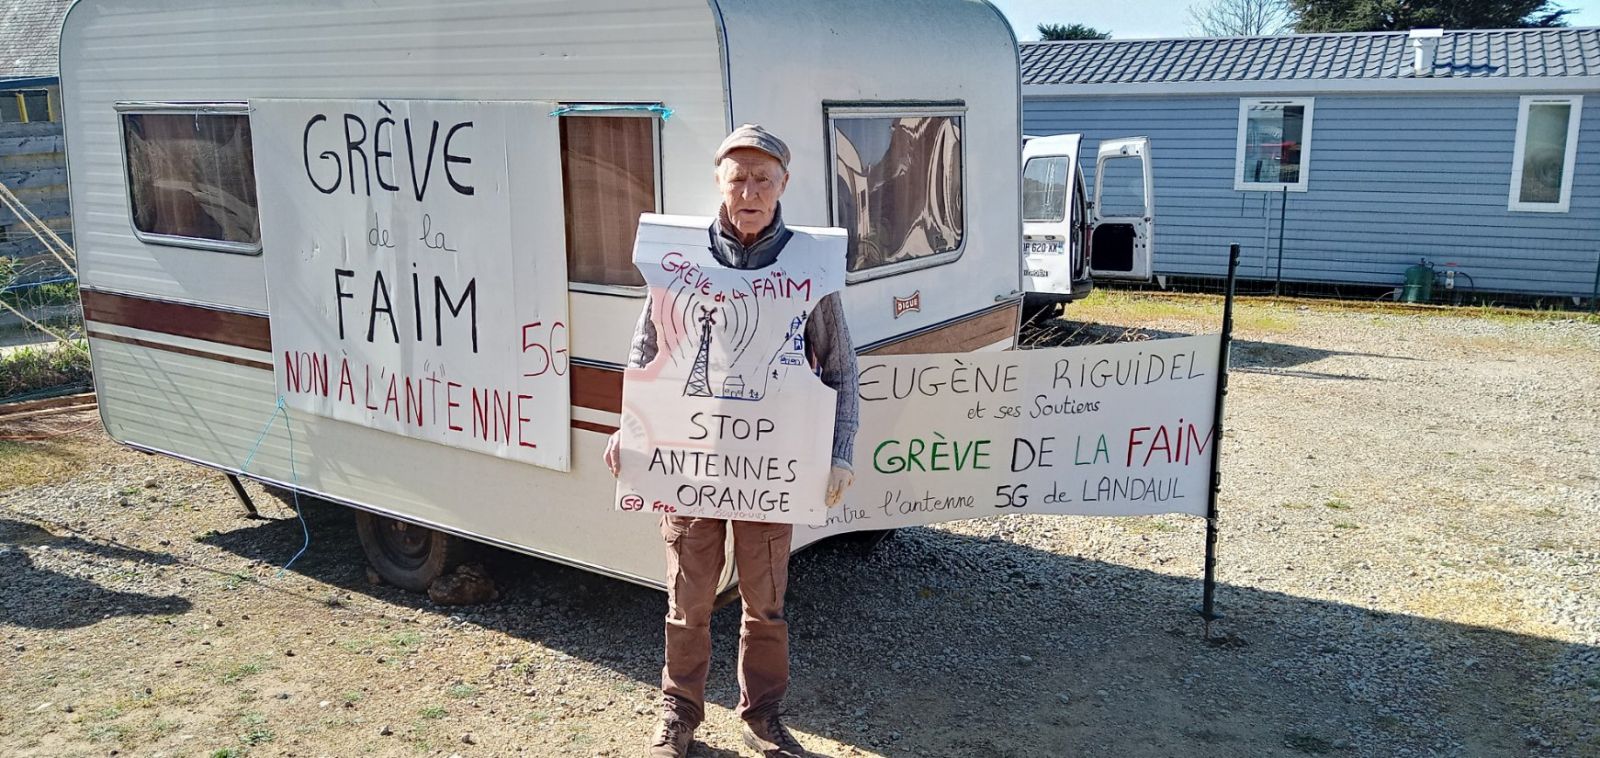 GRÈVE
de la
FAIM
5G
NON À L'ANTENNE
GRÈVE de la FAIM
STOP
ANTENNES
ORANGE
5G Free SFR BOUYGUES
DIGUE
EUGÈNE RIGUIDEL
et ses Soutiens
GRÈVE DE LA FAIM
contre l'antenne 5G de LANDAUL
CITROËN